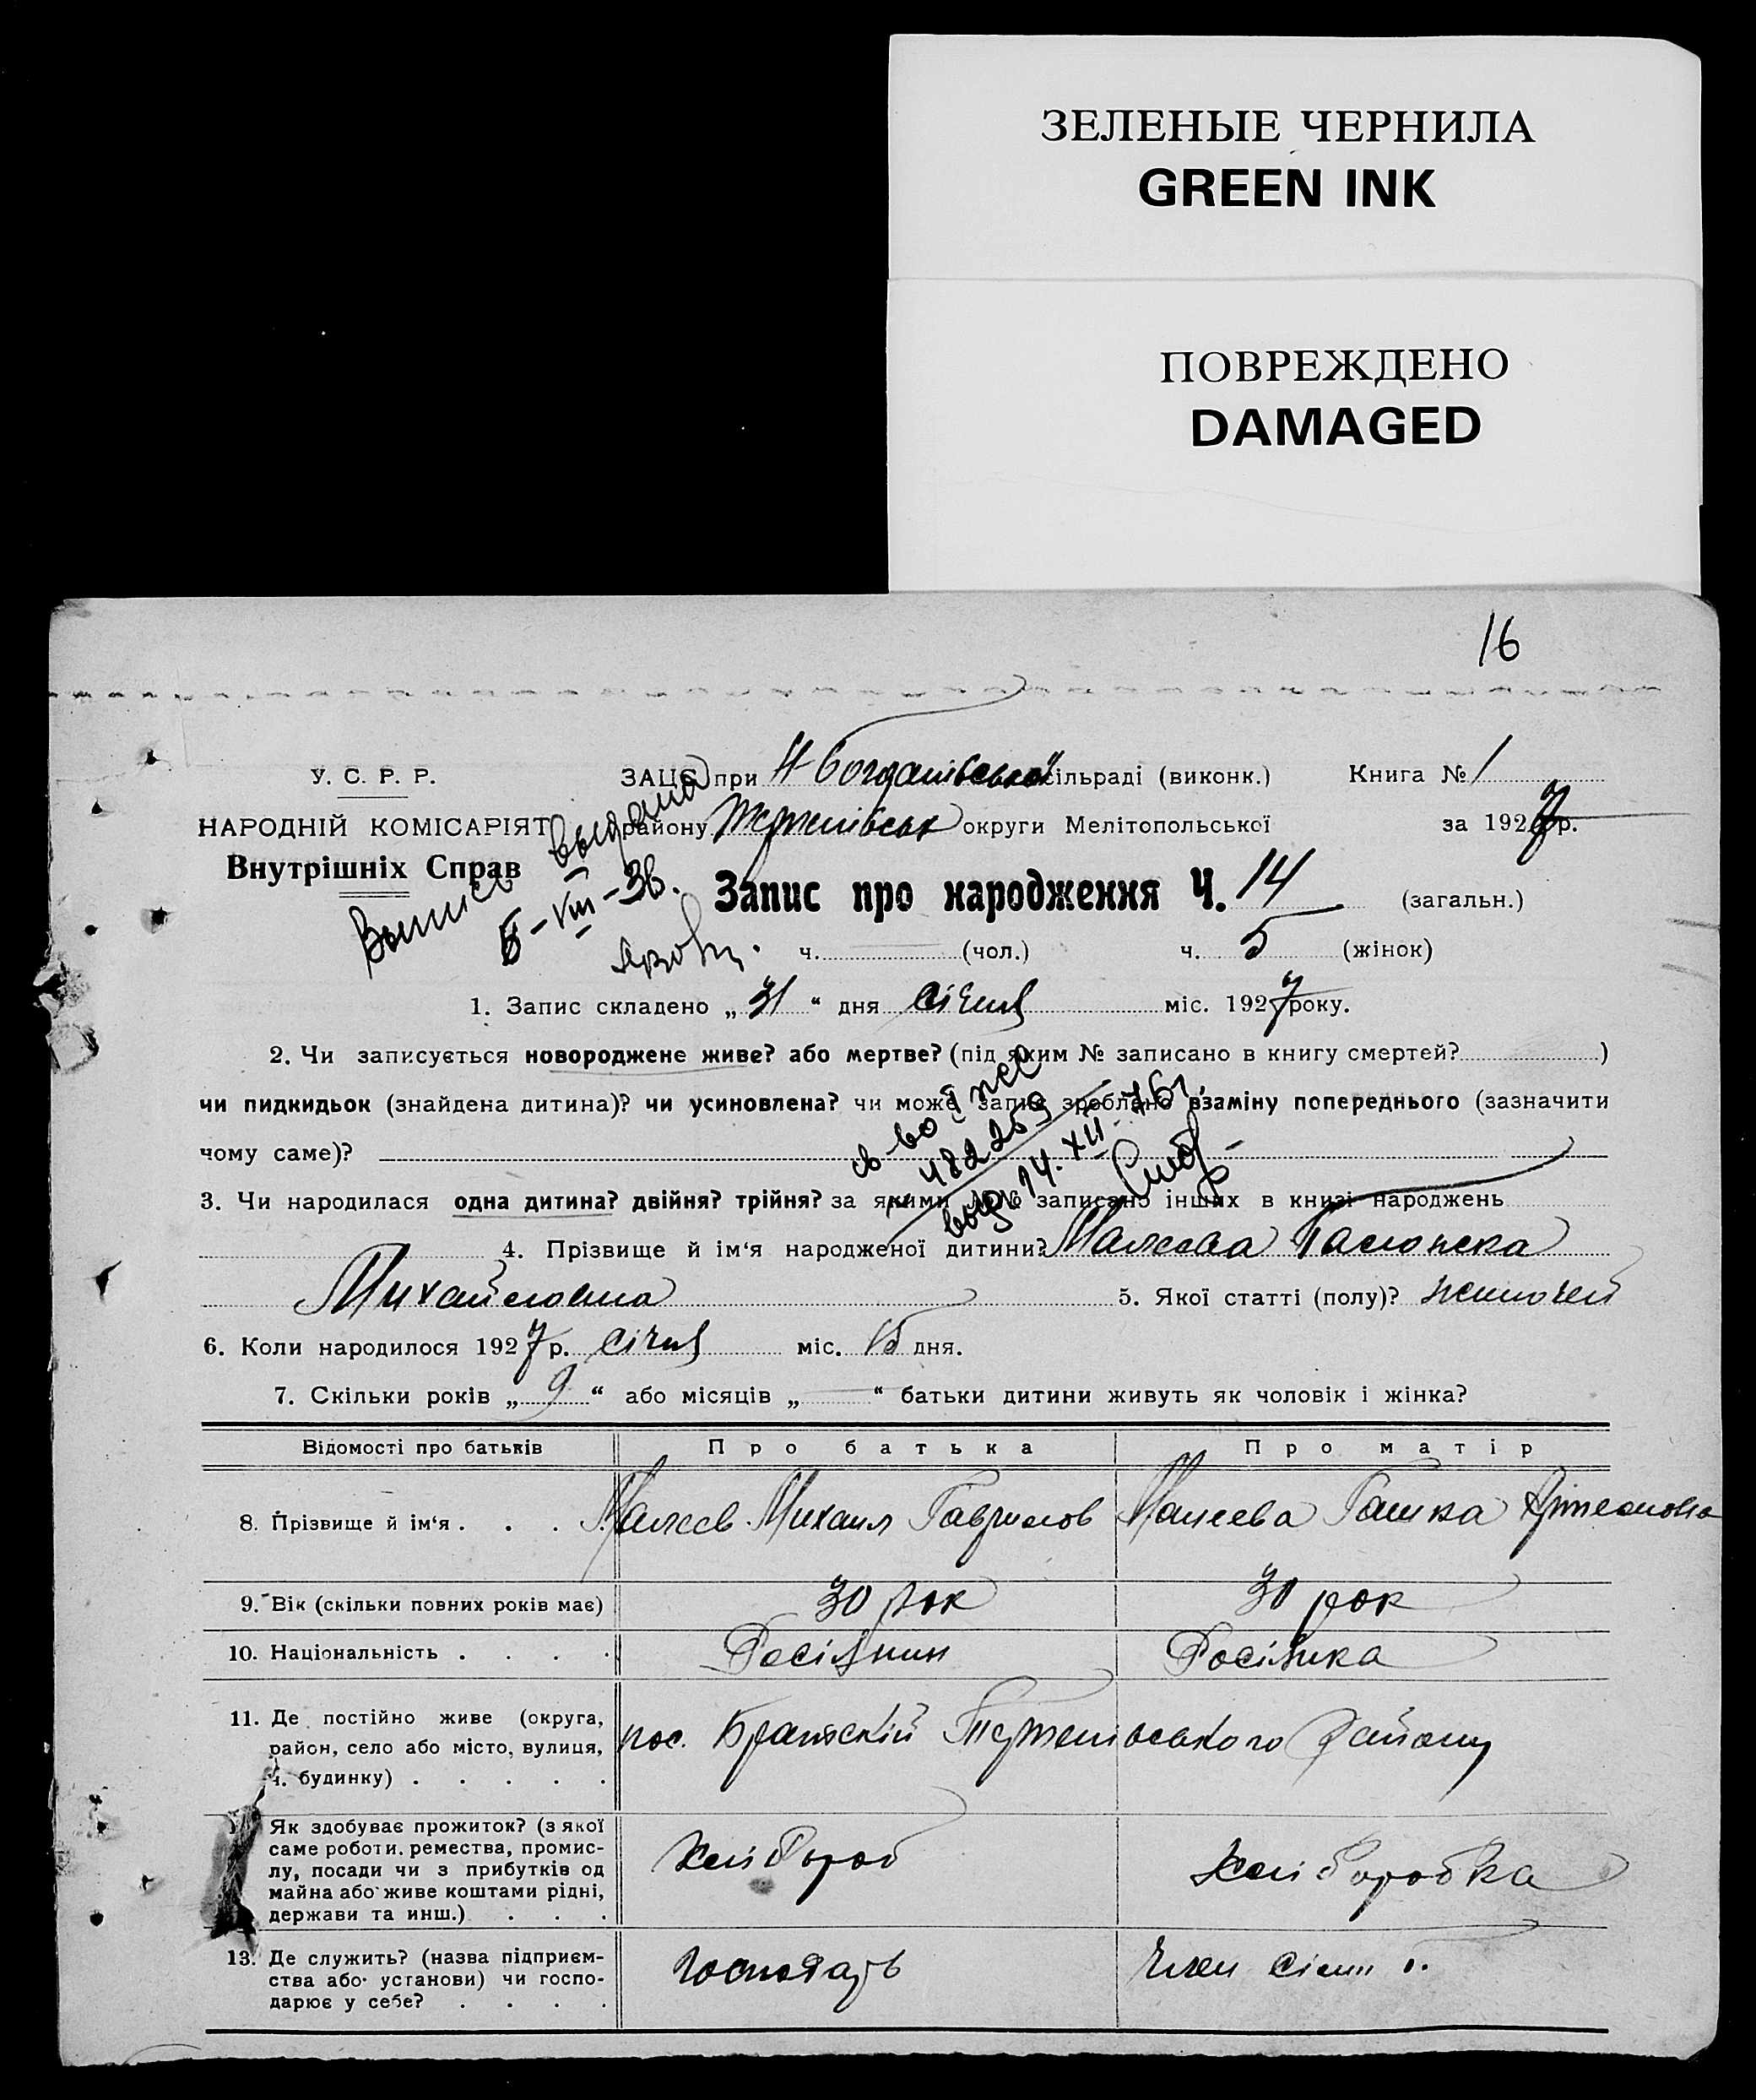 ЗЕЛЕНЫЕ ЧЕРНИЛА
GREEN INK
ПОВРЕЖДЕНО
DAMAGED
16
У. С. Р. Р.
НАРОДНІЙ КОМІСАРІЯТ
Внутрішніх Справ
ЗАЦС при Н Богданівській сільраді (виконк.) Книга № 1
району округи Мелітопольської за 1927 р.
выдана
VIII-36.
Запис про народження Ч. 14 (загальн.)
ч. (чол.) ч. 5 (жінок)
1. Запис складено „31“ дня січня міс. 1927 року.
2. Чи записується новороджене живе? або мертве? (під яким № записано в книгу смертей? )
чи пидкидьок (знайдена дитина)? чи усиновлена? чи може запис зроблено взаміну попереднього (зазначити
чому саме)?
св во
482259
выд 14. XII. 76г.
3. Чи народилася одна дитина? двійня? трійня? за якими №№ записано інших в книзі народжень
4. Прізвище й ім‘я народженої дитини?
Михайловна 5. Якої статті (полу)? жіночей
6. Коли народилося 1927 р. січня міс. 15 дня.
7. Скільки років „9“ або місяців „ “ батьки дитини живуть як чоловік і жінка?
Відомості про батьків Про батька Про матір
8. Прізвище й ім‘я . . . Михаил Гаврилов Пашка Артемовна
9. Вік (скільки повних років має) 30 рок 30 рок
10. Національність . . . . Росіянин Росіянка
11. Де постійно живе (округа,
район, село або місто, вулиця,
ч. будинку) . . . . .
пос. району
Як здобуває прожиток? (з якої
саме роботи, ремества, промис-
лу, посади чи з прибутків од
майна або живе коштами рідні,
держави та инш.) . . .
хлібороб хліборобка
13. Де служить? (назва підприєм-
ства або установи) чи госпо-
дарює у себе? . . . .
господарь член сімї